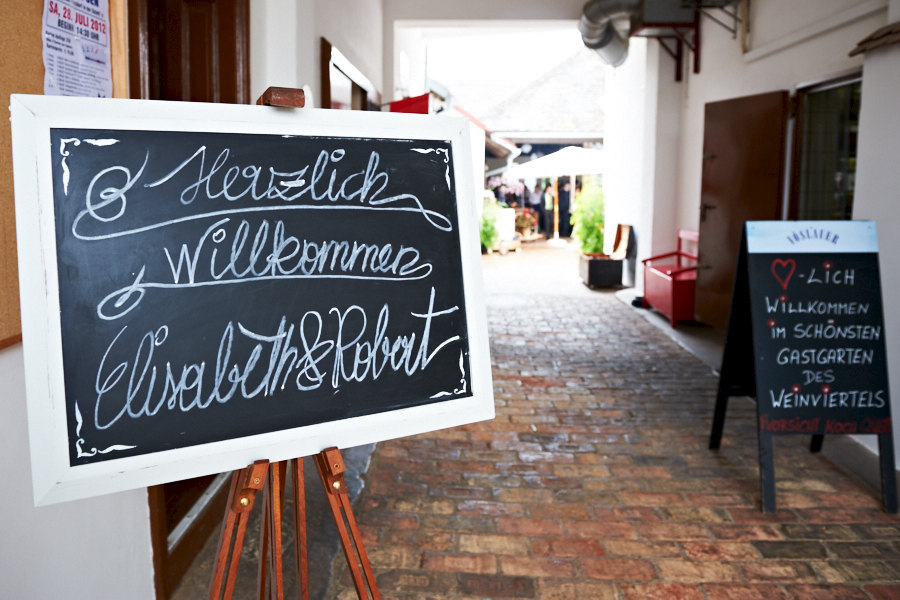 SA, 28. JULI 2012
BEGINN 14:30 UHR
Herzlich
Willkommen
Elisabeth & Robert
VÖSLAUER
♥-LICH
WILLKOMMEN
IM SCHÖNSTEN
GASTGARTEN
DES
WEINVIERTELS
VORSICHT KOCH